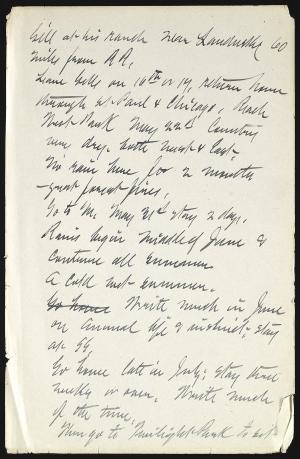 Gill at his ranch near Landusky 60
miles from R.R.
Leave Gills on 16th or 17, return home
through St. Paul & Chicago, Reach
West Park May 22d Country
very dry. both west & East.
No rain here for 2 months
- great forest fires,
Go to Me. May 31st stay 2 days.
Rains begin middle of June &
continue all summer
A cold wet summer.
Go home Write much in June
on animal life & instinct; stay
at SS.
Go home late in July; stay three
weeks or more. Write much
of the time.
Then go to Twilight Park to